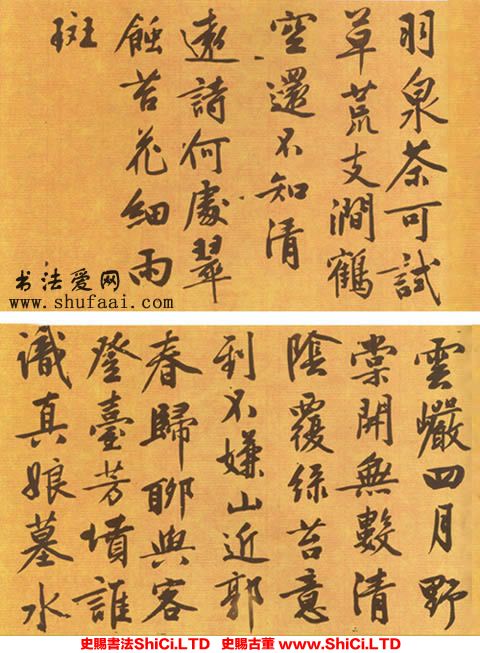 羽泉茶可試
草荒支澗鶴
空還不知清
遠詩何處翠
蝕苔花細雨
斑
书法爱网
www.shufaai.com
雲巖四月野
棠開無數清
陰覆綠苔意
到不嫌山近郭
春歸聊與客
登臺芳墳誰
識真娘墓水
史賜書法ShiCi.LTD 史賜古董 www.ShiCi.LTD